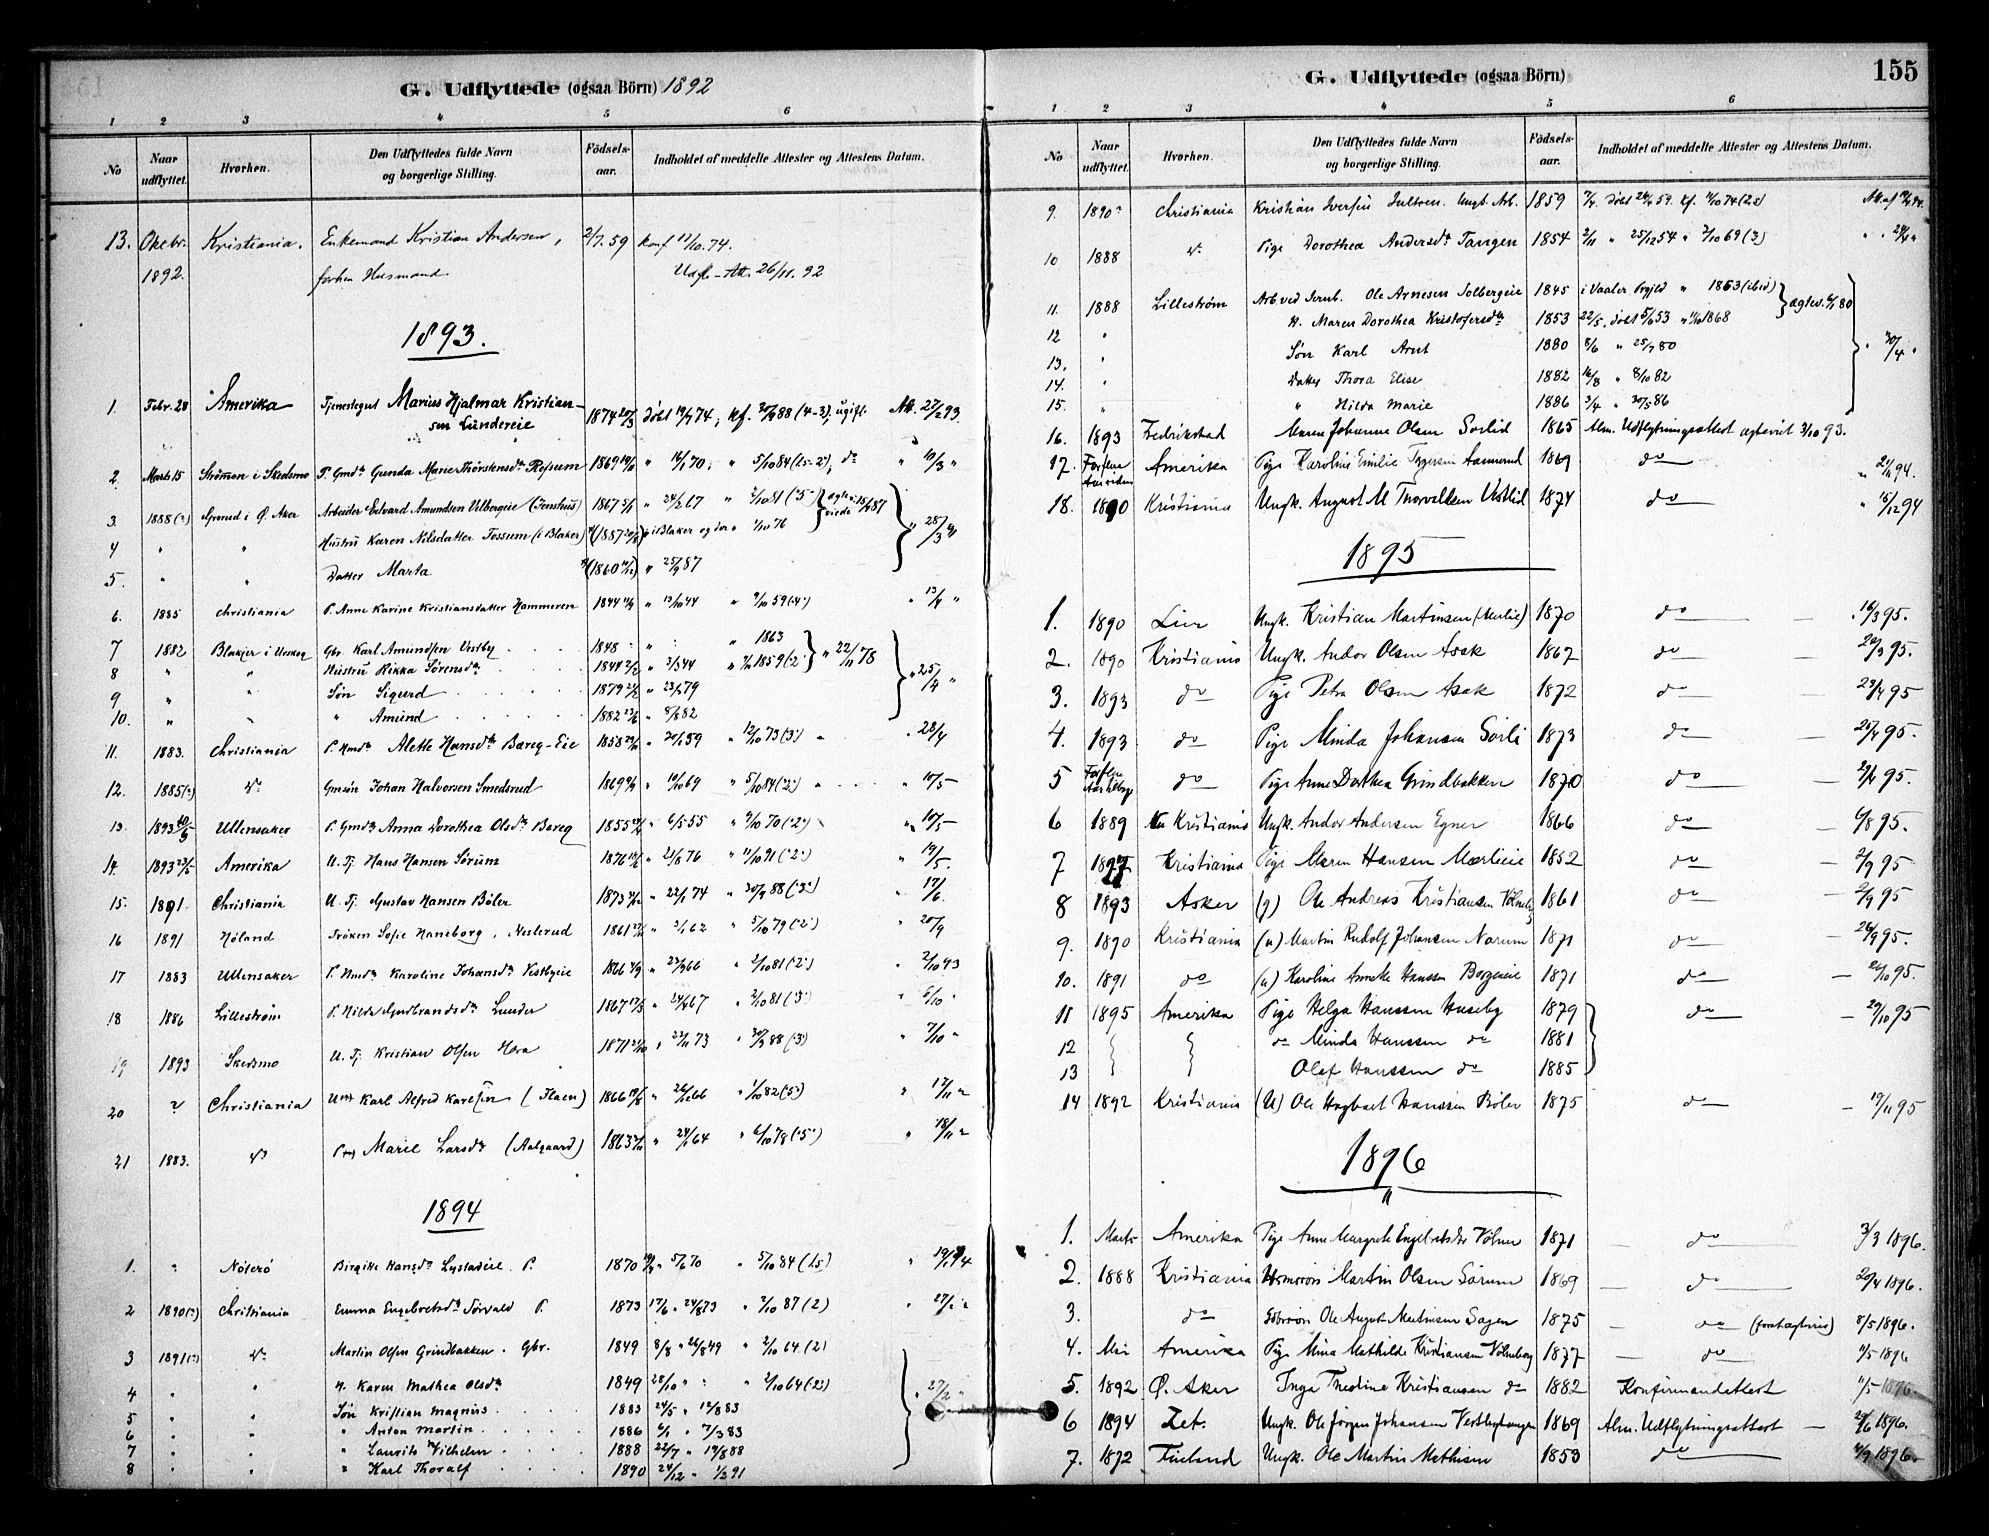 G. Udflyttede (ogsaa Börn) 1892
1 2 3 4 5 6
No Naar udflyttet. Hvorhen. Den Udflyttedes fulde Navn og borgerlige Stilling. Födsels-aar. Indholdet af meddelte Attester og Attestens Datum.
13. Oktbr. Kristiania. Enkemand Kristian Andersen, 2/7.59 konf 11/10.74.
1892. forhen Husmand Udfl-Att. 26/11.92
1893.
1. Febr. 28 Amerika Tjenestegut Marius Hjalmar Kristian-
sen Lundereie 1874 döbt 19/4 74, kf. 30/9 88 (4-3), ugift. Att. 27/2 93.
2. Marts 15 Strömmen i Skedsmo P. Gmdr Gunda Marie Thorstensdr Refsum 1869 " 16/1 70; " 5/10 84 (2), do " 10/3 "
3. 1888 (?) Grorud i Ø. Aker Arbeider Edvard Amundsen Ulbergeie (Jenshus) 1867 " 24/2 67 " 2/10 81 ("5")
4 " " Hustru Karen Nilsdatter Fossum (i Blaker) (1887 i Blaker " 1/10 76 " 28/3 "
5. " " Datter Marta (1860 " 25/9 87
6. 1885 Christiania P. Anne Karine Kristiansdatter Hammeren 1844 " 13/10 44 " 9/10 59 ("4") " 13/4 "
7 1882 Blakjer i Urskog Gbr. Karl Amundsen Vestby 1848 " " 1863
8 " " Hustru Rikka Sörensdr 1844 " 3/3 44 " 1859 (2 " 22/11 78
9 " " Sön Sigurd 1879 " 23/1 79 " 25/4 "
10. " " " Amund 1882 " 8/8 82
11. 1883. Christiania P. Hmdr Alette Hansdr Bareg-Eie 1858 " 20/1 59 " 12/10 73 (3) " 28/4
12. 1885 (?) do Gmsön Johan Halvorsen Smedsrud 1869 " 10/10 69 " 5/10 84 ("2") " 10/5
13. 1893 Ullensaker P. Gmdr Anna Dorothea Olsdr Bareg 1855 " 6/5 55 " 9/10 70 ("2") " 10/5
14. 1893 Amerika U. Tj. Hans Hansen Sörum 1876 " 21/8 76 " 11/10 91 ("2") " 19/5.
15. 1891. Christiania U. Tj. Gustav Hansen Böler 1873 " 22/1 74 " 30/9 88 ("3") " 17/6.
16 1891 Höland Fröken Sofie Haneborg, Nesterud 1861 " 3/1 62 " 5/10 79 (2) " 20/9
17 1883 Ullensaker P. Hmdr Karoline Johansdr Vestbyeie 1866 " 23/9 66 " 2/10 81 (2) " 2/10 93
18 1886 Lilleström P. Hilda Gudbrandsdr Lunder 1867 " 24/6 67 " 2/10 81 (3) " 6/10 "
19 1893 Skedsmo U. Tj. Kristian Olsen Hora 1871 " 23/11 73 " 30/9 88 (3) " 7/10 "
20 ? Christiania Karl Alfred Karlsen (Flaen) 1866 " 26/12 66 " 1/10 82 (5) " 17/11 "
21 1883. do Marie Larsdr (Aalgaard) 1863 " 24/1 64 " 6/10 78 (5) " 18/11 "
1894
1. " Nöterö Birgitte Hansdr P. 1870 5/6 70 " 5/10 84 " 19/1 94
2 1890 (?) Christiania Emma Engebretsdr Sörvald P. 1873 17/6 " 24/8 73 " 2/10 87 (2) " 27/2 "
3 1891 (?) do Martin Olsen Grindbakken. Gbr. 1849 8/8 " 26/8 49 " 2/10 64 (2)
4 " " H. Karen Mathea Olsdr 1849 28/10 " " 2/10 64 (2) " 27/2 "
5 " " Sön Kristian Magnus 1883 24/5 " 12/8 83
6 " " " Anton Martin 1886 6/1 " 7/3 83
7 " " " Laurits Vilhelm 1888 22/7 " 19/8 88
8 " " " Karl Thoralf 1890 24/12 " 1/2 91
G. Udflyttede (ogsaa Börn) 155
1 2 3 4 5 6
No Naar udflyttet. Hvorhen. Den Udflyttedes fulde Navn og borgerlige Stilling. Födsels-aar. Indholdet af meddelte Attester og Attestens Datum.
9. 1890? Christiania Kristian Iversen Ungk. Arb. 1859 döbt 24/4 59. kf. 11/10 74
10 1888 do Pige Dorothea Andersdr Tangen 1854 2/11 " 25/12 54 " 3/10 69 (3)
11. 1888 Lilleström Arb. ved Jernb. Ole Arnesen Solbergeie 1845 i Vaaler " 1863 (ibid) ægtev. 80
12 " H. Maren Dorothea Kristofersdr 1853 22/5, döbt 5/6 53 " 1868
13. " Sön Karl Arnt 1880 8/6 " 25/7 80 " 30/4 "
14. " Datter Thora Elise 1882 16/8 " 8/10 82
15. " " Hilda Marie 1886 3/4 " 30/5 86
16. 1893 Fredrikstad Maren Johanne Olsen Sorlid 1865 Alm. Udflytningsattest ægteviet 3/10 93.
17. Amerika Pige Karoline Emilie Aamerud 1869 do " 94.
18. 1890 Kristiania Ungk. August M Thorvaldsen Vestlid 1874 do " 15/12 94
1895
1. 1890 Lier Ungk. Kristian Martinsen 1870 do 16/3 95.
2. 1890 Kristiania Ungk. Andor Olsen Asak 1867 do 20/3 95.
3. 1893 do Pige Petra Olsen Asak 1872 do 23/4 95
4. 1893 do Pige Minda Johansen Sorli 1873 do 25/4 95.
5 do Pige Anne Dorthea Grindbakken 1870 do 95.
6 1889 Kristiania Ungk. Andor Andersen Egner 1866 do 6/8 95.
7 Kristiania Pige Maren Hansen Mærlieie 1852 do 2/9 95
8 1893 Asker (g) Ole Andreas Kristiansen Völneby 1861 do 2/9 95
9. 1890 Kristiania (u) Martin Rudolf Johansen Narum 1871 do 26/9 95.
10. 1891 do (u) Karoline Annette Hanssen Borgereie 1871 do 95.
11 1895 Amerika Pige Helga Hanssen Huseby 1879 do 29/10 95
12 do Minda Hanssen do 1881
13 Olaf Hanssen do 1885
14 1892 Kristiania (U) Ole Hagbart Hanssen Böler 1875 do 19/11 95
1896
1. Marts Amerika Pige Anne Margrete Engebretsdr Völner 1871 do 3/3 1896.
2. 1888 Kristiania Martin Olsen Sörum 1869 do 20/4 1896.
3. do Ole August Martinsen Sagen 1875 do 8/5 1896.
4. Mai Amerika Pige Mina Mathilde Kristiansen Völneberg 1877 do 11/5 1896
5. 1892 Ø. Aker Inga Thedine Kristiansen do 1882 Konfirmandattest 11/5 1896
6 1894 Zet. Ungk. Ole Jörgen Johansen Vestbytangen 1869 Alm. Udflytningsattest 1896.
7. 1872 Finland Ungk. Ole Martin Mathisen 1853 do 1896